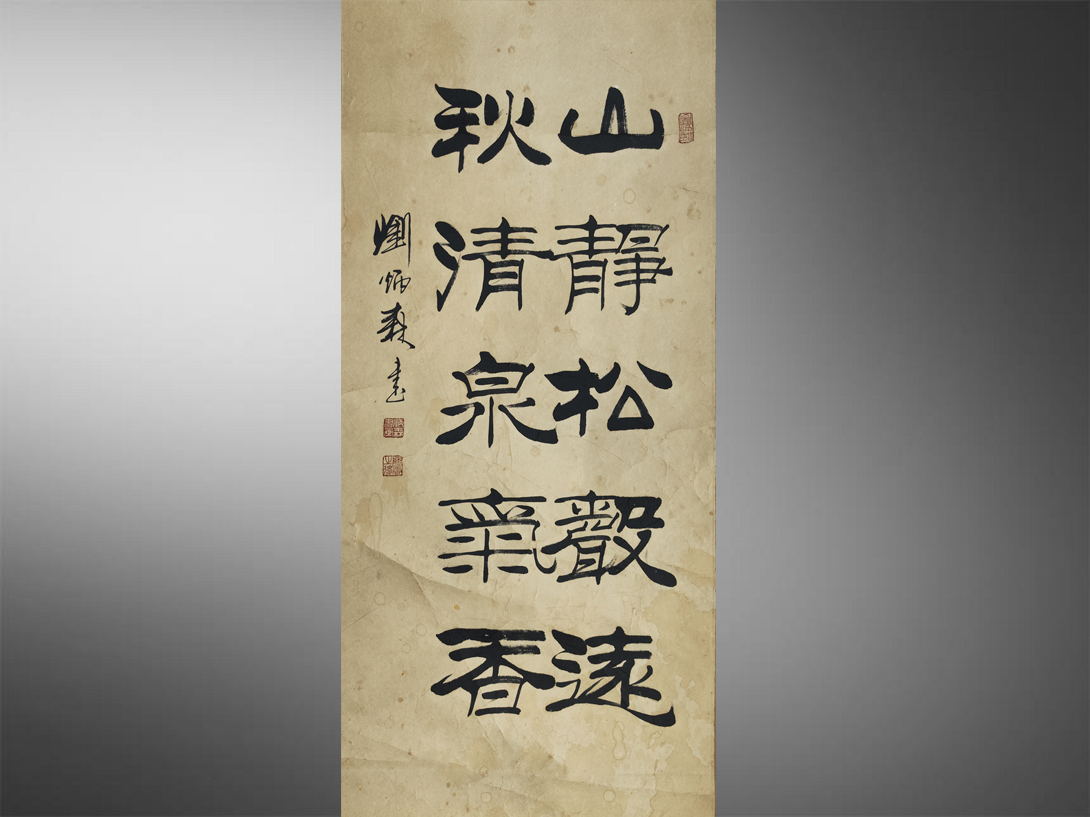 山靜松聲遠
秋清泉氣香
劉炳森書